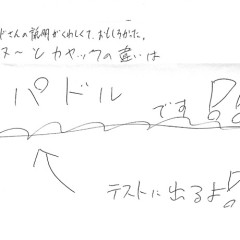 さんの説明がくわしくて、おもしろかった。
ヌ〜とカヤックの違いは
パドル です!!
テストに出るよ!!